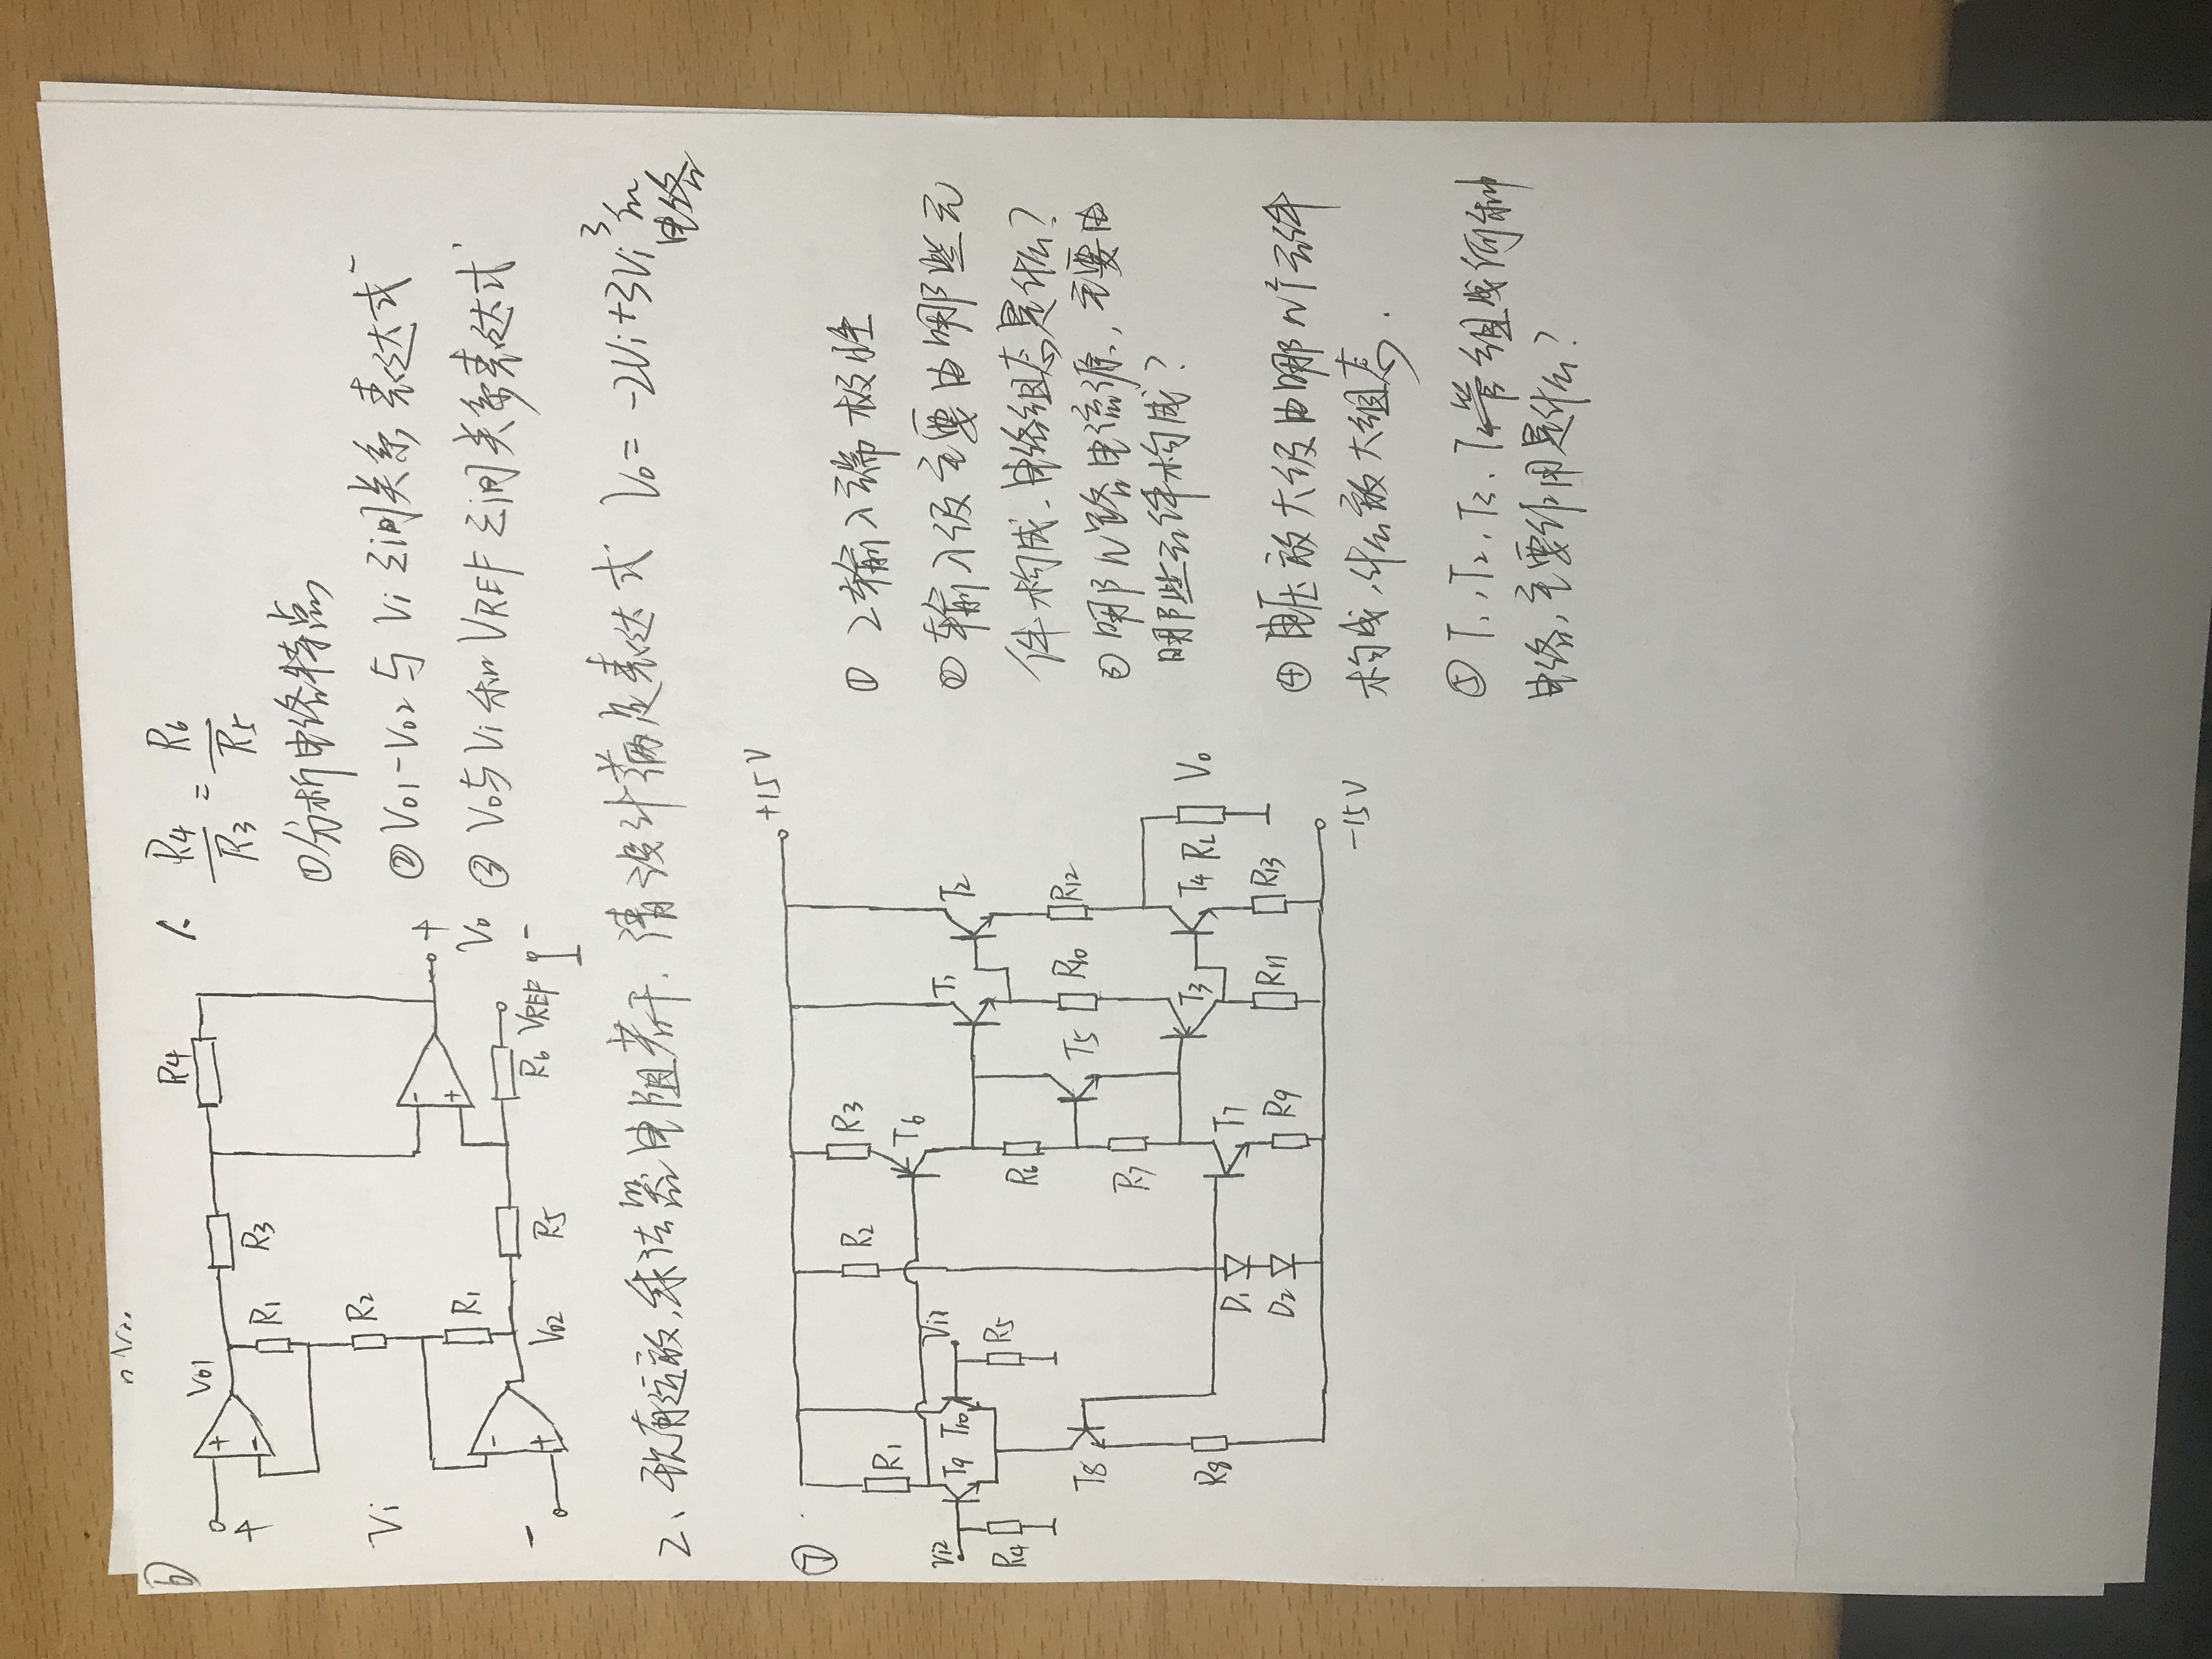 ⑥
Vo1
R4
R1
R3
R2
Vi
R1
+
Vo
-
Vo2
R5
R6 VREF
1. R4/R3 = R6/R5
①分析电路特点
②Vo1-Vo2与Vi之间关系表达式
③Vo与Vi和VREF之间关系表达式
2、现有运放,乘法器电阻若干.请设计满足表达式 Vo=-2Vi+3Vi³的
电路
⑦
+15V
R1
R2
R3
T6
Vi2
T9
T10
Vi1
R4
R5
T1
T2
R6
T5
R10
R12
T8
R7
T3
T4
RL
Vo
R8
D1
D2
T7
R9
R11
R13
-15V
① 2输入端极性
② 输入级主要由哪些元
件构成.电路组态是什么?
③ 哪几路电流源,主要由
哪些元件构成?
④ 电压放大级由哪个元件
构成,什么放大组态.
⑤ T1,T2,T3、T4管组成何种
电路,主要作用是什么?